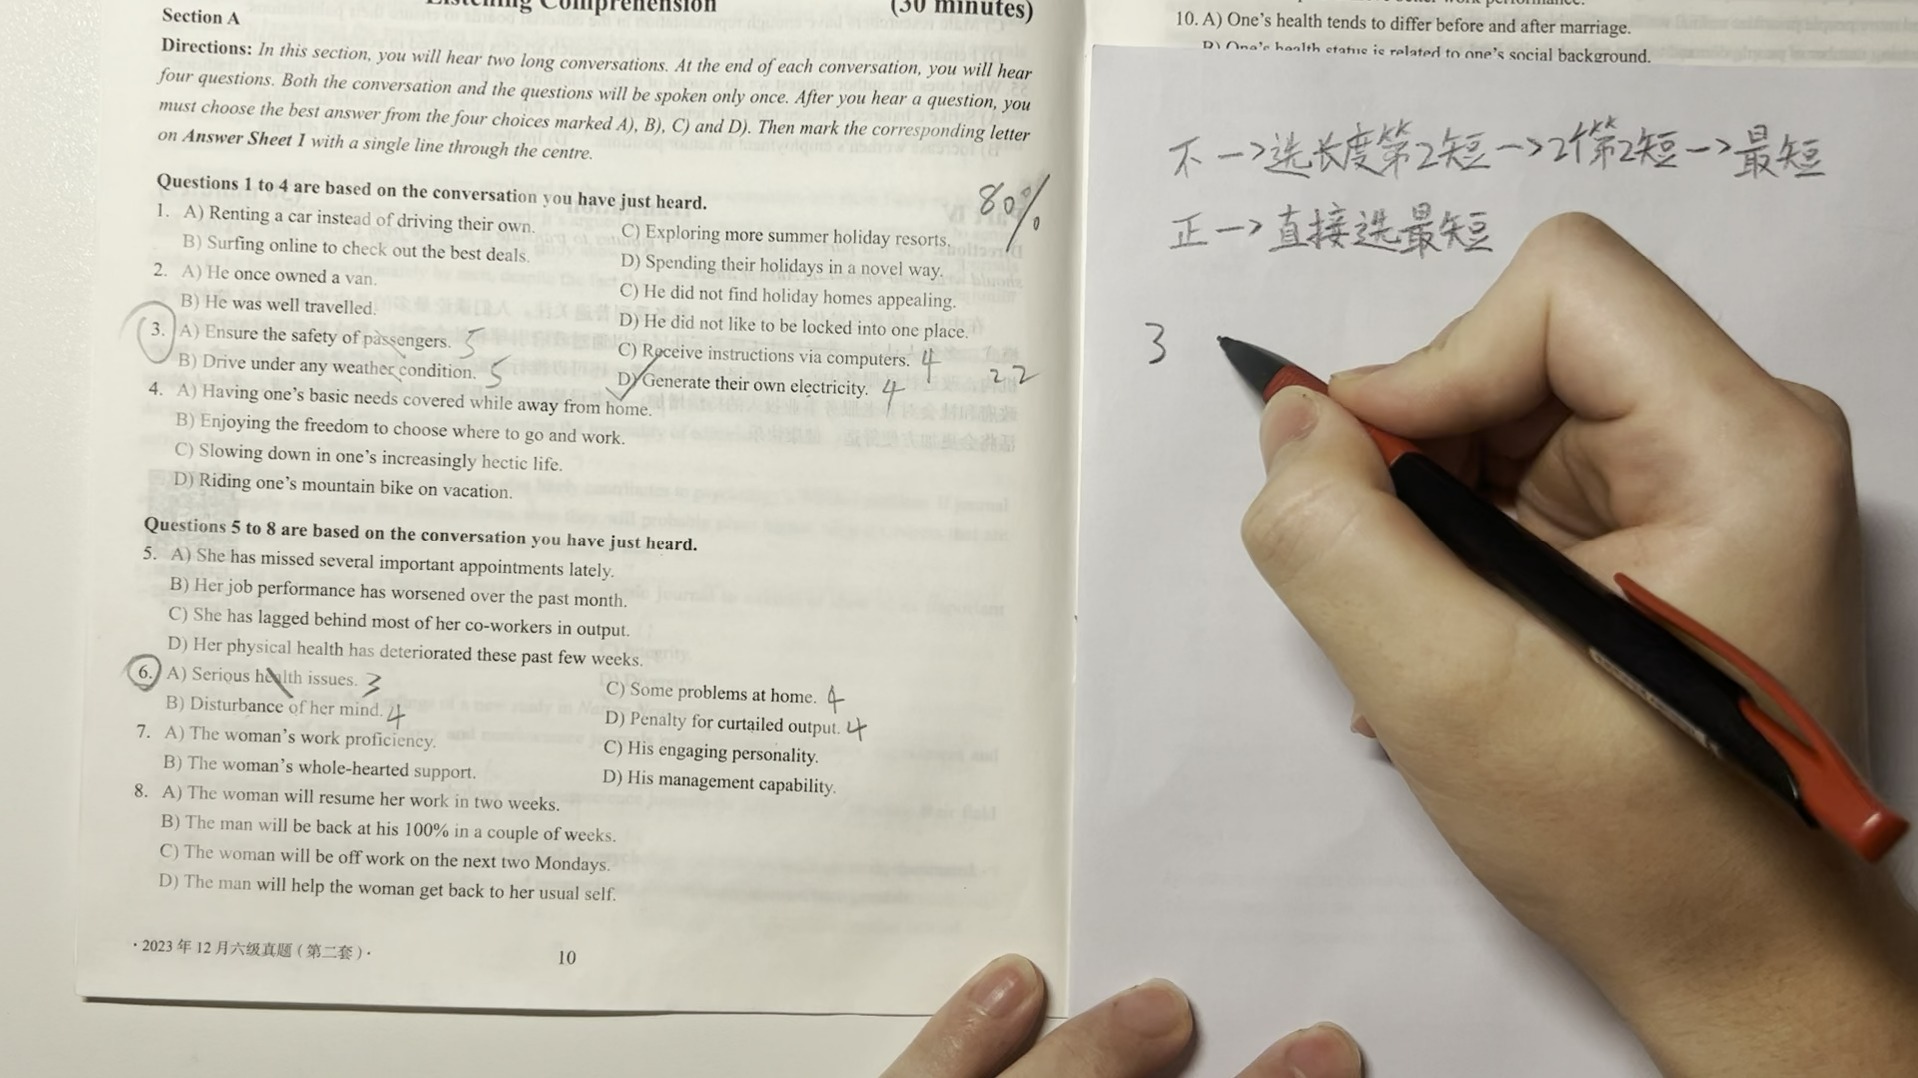 Listening Comprehension (30 minutes)
Section A
Directions: In this section, you will hear two long conversations. At the end of each conversation, you will hear
four questions. Both the conversation and the questions will be spoken only once. After you hear a question, you
must choose the best answer from the four choices marked A), B), C) and D). Then mark the corresponding letter
on Answer Sheet 1 with a single line through the centre.
Questions 1 to 4 are based on the conversation you have just heard.
80%
1. A) Renting a car instead of driving their own.
B) Surfing online to check out the best deals.
C) Exploring more summer holiday resorts.
D) Spending their holidays in a novel way.
2. A) He once owned a van.
B) He was well travelled.
C) He did not find holiday homes appealing.
D) He did not like to be locked into one place.
3. A) Ensure the safety of passengers. 5
B) Drive under any weather condition. 5
C) Receive instructions via computers. 4
D) Generate their own electricity. 4
22
4. A) Having one's basic needs covered while away from home.
B) Enjoying the freedom to choose where to go and work.
C) Slowing down in one's increasingly hectic life.
D) Riding one's mountain bike on vacation.
Questions 5 to 8 are based on the conversation you have just heard.
5. A) She has missed several important appointments lately.
B) Her job performance has worsened over the past month.
C) She has lagged behind most of her co-workers in output.
D) Her physical health has deteriorated these past few weeks.
6. A) Serious health issues. 3
B) Disturbance of her mind. 4
C) Some problems at home. 4
D) Penalty for curtailed output. 4
7. A) The woman's work proficiency.
B) The woman's whole-hearted support.
C) His engaging personality.
D) His management capability.
8. A) The woman will resume her work in two weeks.
B) The man will be back at his 100% in a couple of weeks.
C) The woman will be off work on the next two Mondays.
D) The man will help the woman get back to her usual self.
·2023年12月六级真题(第二套)·
10
10. A) One's health tends to differ before and after marriage.
B) One's health status is related to one's social background.
不→选长度第2短→2个第2短→最短
正→直接选最短
3